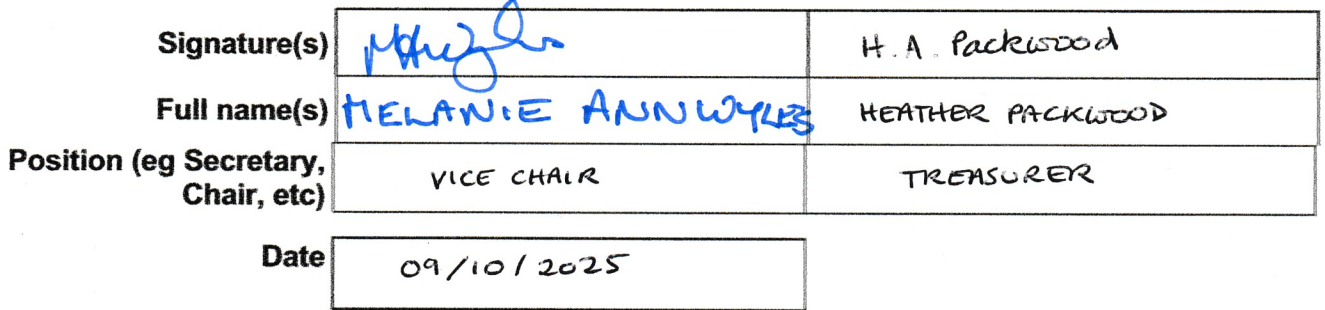 Signature(s) H. A. Packwood
Full name(s) MELANIE ANN WYLES HEATHER PACKWOOD
Position (eg Secretary,
Chair, etc) VICE CHAIR TREASURER
Date 09/10/2025